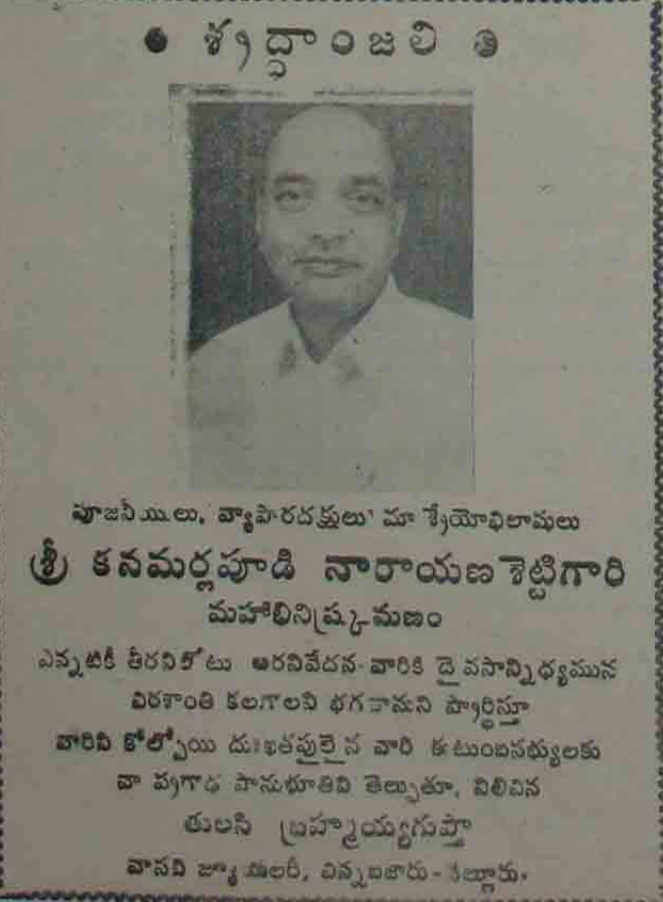 శ్రద్ధాంజలి
పూజనీయులు, వ్యాపారదక్షులు' మా శ్రేయోభిలాషులు
శ్రీ కనమర్లపూడి నారాయణ శెట్టిగారి
మహాభినిష్క్రమణం
ఎన్నటికీ తీరనిలోటు ఆరనివేదన-వారికి దైవసాన్నిధ్యమున
చిరశాంతి కలగాలని భగవానుని ప్రార్థిస్తూ
వారిని కోల్పోయి దుఃఖతప్తులైన వారి కుటుంబసభ్యులకు
మా ప్రగాఢ సానుభూతిని తెల్పుతూ, నిలిచిన
తులసి బ్రహ్మయ్యగుప్తా
వాసవి జ్యూయలరీ, చిన్నబజారు-